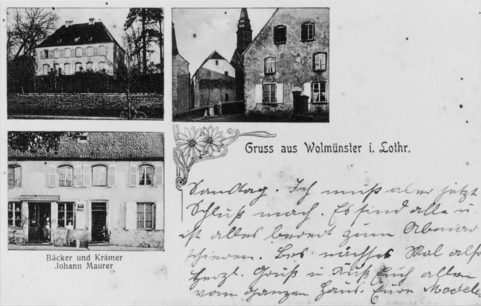 Gruss aus Wolmünster i. Lothr.
Bäcker und Krämer
Johann Maurer
Samstag. Ich muß aber jetzt
Schluß mach. Es sind alle u.
ist alles bereit zum
Bis nächstes Mal also
Herzl. Gruß u Kuß Euch allen
vom ganzen Haus. Eure